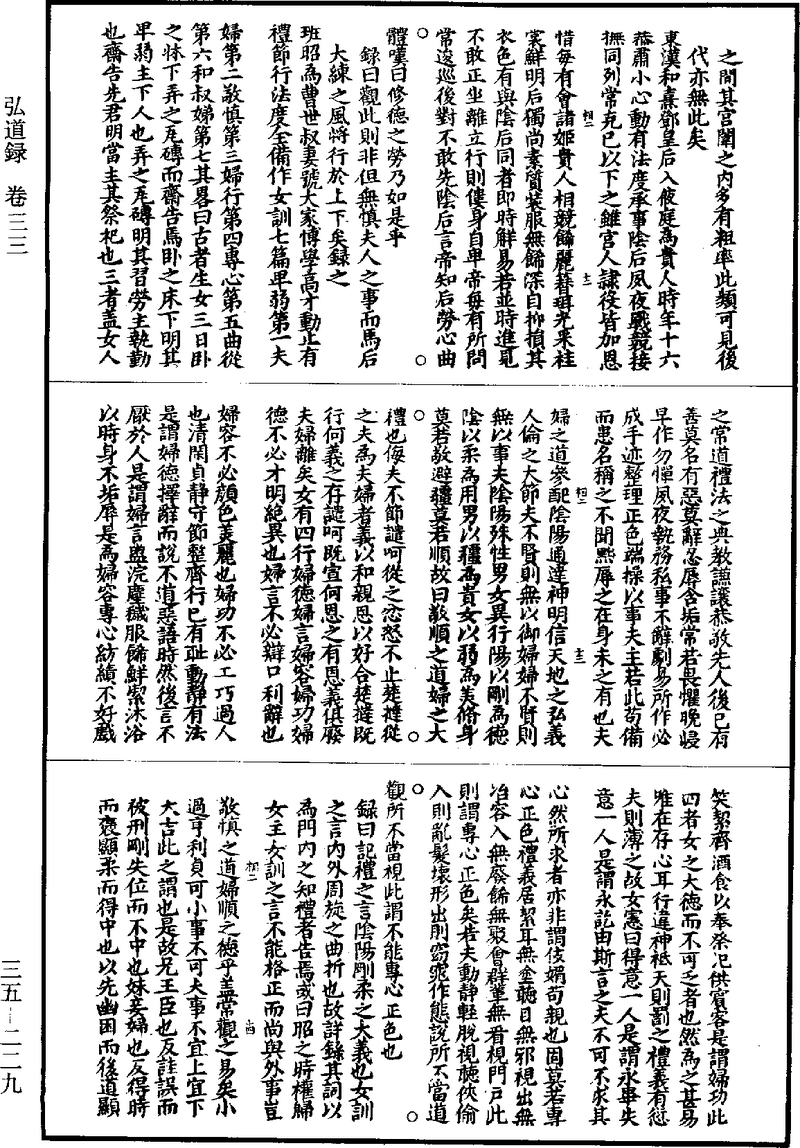 之間其宮闈之內多有粗率此類可見後
代亦無此矣
東漢和熹鄧皇后入掖庭為貴人時年十六
恭肅小心動有法度承事陰后夙夜戰兢接
撫同列常克已以下之雖宮人隷役皆加恩
惜每有會諸姬貴人相競飾麗簪珥光采袿
裳鮮明后獨尚素質裝服無飾深自抑損其
衣色有與陰后同者即時解易若並時進見
不敢正坐離立行則僂身自卑帝每有所問
常逡巡後對不敢先陰后言帝知后勞心曲
體嘆曰修德之勞乃如是乎
錄曰觀此則非但無慎夫人之事而馬后
大練之風將行於上下矣錄之
班昭為曹世叔妻號大家博學高才動止有
禮節行法度全備作女訓七篇卑弱第一夫
婦第二敬慎第三婦行第四專心第五曲從
第六和叔娣第七其畧曰古者生女三日卧
之牀下弄之瓦磚而齋告焉卧之床下明其
卑弱主下人也弄之瓦磚明其習勞主執勤
也齋告先君明當主其祭祀也三者盖女人
之常道禮法之典教謙讓恭敬先人後已有
善莫名有惡莫辭忍辱含垢常若畏懼晚寢
早作勿憚夙夜執務私事不辭劇易所作必
成手迹整理正色端操以事夫主若此苟備
而患名稱之不聞黜辱之在身未之有也夫
婦之道參配陰陽通達神明信天地之弘義
人倫之大節夫不賢則無以御婦婦不賢則
無以事夫陰陽殊性男女異行陽以剛為德
陰以柔為用男以彊為貴女以弱為美脩身
莫若敬避彊莫若順故曰敬順之道婦之大
禮也侮夫不節譴呵從之忿怒不止楚撻從
之夫為夫婦者義以和親恩以好合楚撻既
行何義之存譴呵既宣何恩之有恩義俱廢
夫婦離矣女有四行婦德婦言婦容婦功婦
德不必才明絶異也婦言不必辯口利辭也
婦容不必顔色美麗也婦功不必工巧過人
也清閑貞靜守節整齊行已有耻動靜有法
是謂婦德擇辭而説不道惡語時然後言不
厭於人是謂婦言盥浣塵穢服飾鮮潔沐浴
以時身不垢辱是為婦容專心紡績不好戲
笑絜齊酒食以奉祭祀供賓客是謂婦功此
四者女之大德而不可乏者也然為之甚易
唯在存心耳行違神祗天則罰之禮義有愆
夫則薄之故女憲曰得意一人是謂永畢失
意一人是謂永訖由斯言之夫不可不求其
心然所求者亦非謂佞媚苟親也固莫若專
心正色禮義居絜耳無塗聽目無邪視出無
冶容入無廢飾無聚會群輩無看視門戸此
則謂專心正色矣若夫動靜輕脫視聽俠偷
入則亂髮壞形出則窈窕作態説所不當道
觀所不當視此謂不能專心正色也
錄曰記禮之言陰陽剛柔之大義也女訓
之言內外周旋之曲折也故詳錄其詞以
為門內之知禮者告焉或曰昭之時權歸
女主女訓之言不能格正而尚與外事豈
敬慎之道婦順之德乎盖常觀之易矣小
過亨利貞可小事不可大事不宜上宜下
大吉此之謂也是故兄王臣也反詿誤而
被刑剛失位而不中也妹妾婦也反得時
而褒顯柔而得中也以先幽困而後道顯
弘道録　卷三三
三五-二二九